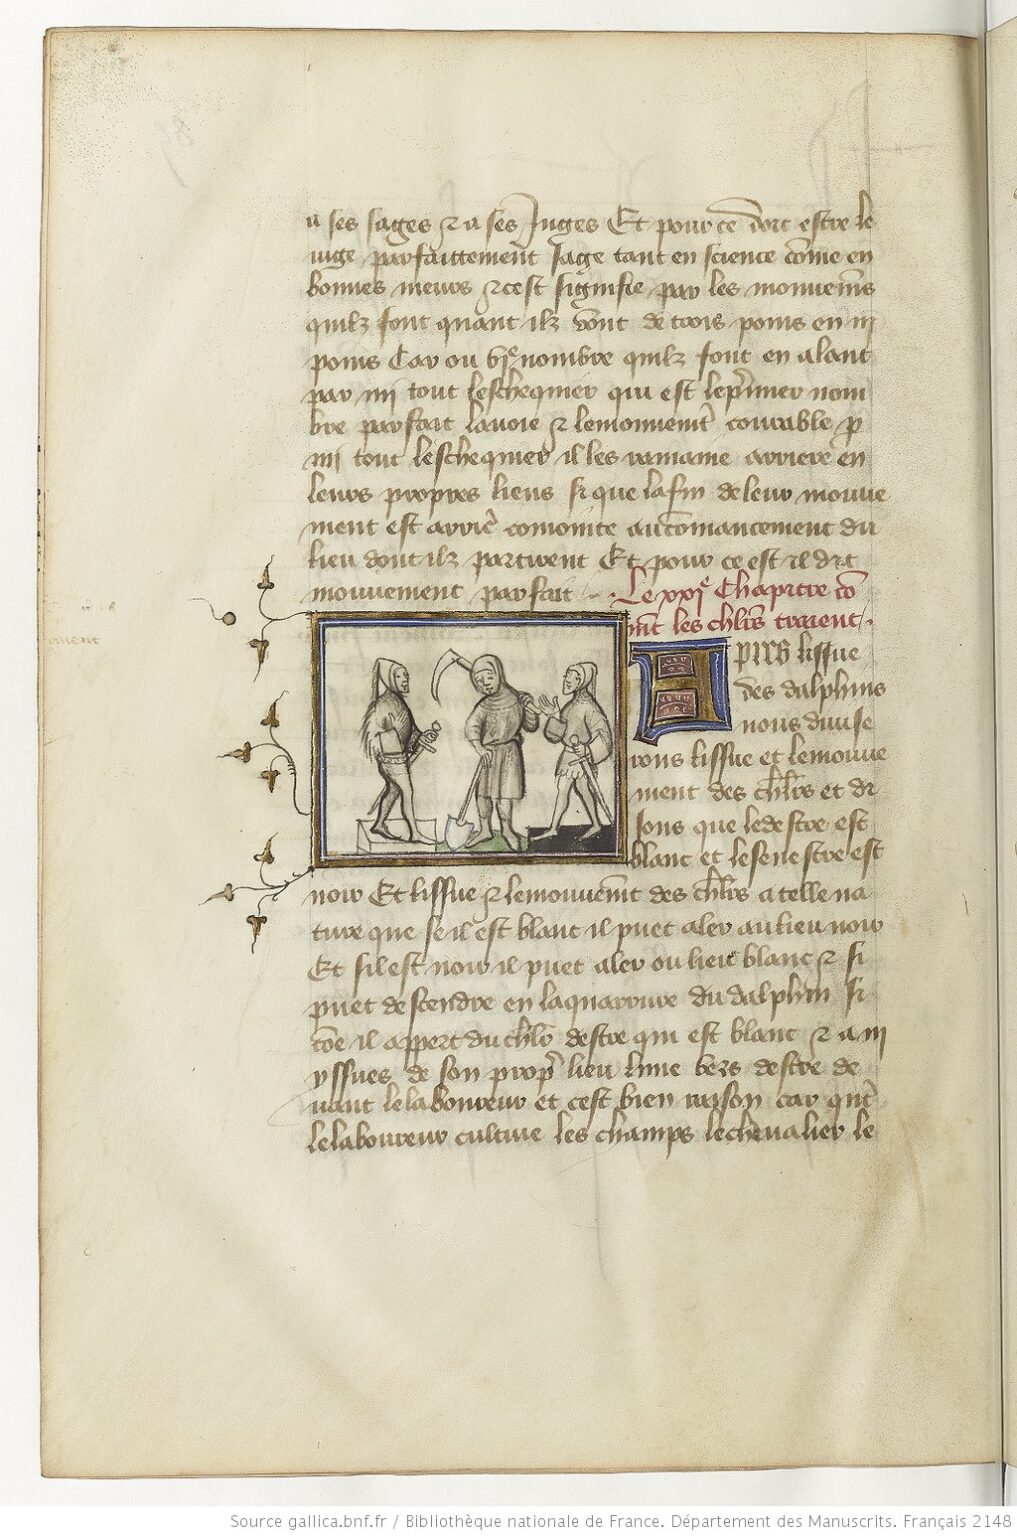 a ses sages ⁊ a ses Juges Et pour ce doit estre le
iuge parfaittement sage tant en science cõme en
bonnes meurs ⁊ cest signifie par les mouuemẽs
quilz font quant ilz vont de trois poins en iij
poins Car ou vjᵉ nombre quilz font en alant
par mi tout leschequier qui est le p̃mier nom
bre parfait la voie ⁊ le mouuemẽt couuable p
mi tout leschequier il les ramaine arriere en
leurs propres lieus si que la fin de leur mouue
ment est arriẽ comointe au cõmancement du
lieu dont ilz partirent Et pour ce est il dit
mouuement parfait
Le xxjᵉ Chapitre cõ
mẽt les chl̃rs traient
Apres lissue
des dalphins
nous diuise
rons lissue et le mouue
ment des chl̃rs et di
sons que le destre est
blanc et le senestre est
noir Et lissue ⁊ le mouuemẽt des chl̃rs a telle na
ture que se il est blanc il puet aler au lieu noir
Et sil est noir il puet aler ou lieu blanc ⁊ si
puet descendre en la quarrure du dalphin si
cõe il appert du chl̃r destre qui est blanc ⁊ a iij
yssues de son prop̃ lieu lune vers destre de
uant le laboureur et cest bien raison car qñt
le laboureur cultiue les champs le cheualier le
Source gallica.bnf.fr / Bibliothèque nationale de France. Département des Manuscrits. Français 2148